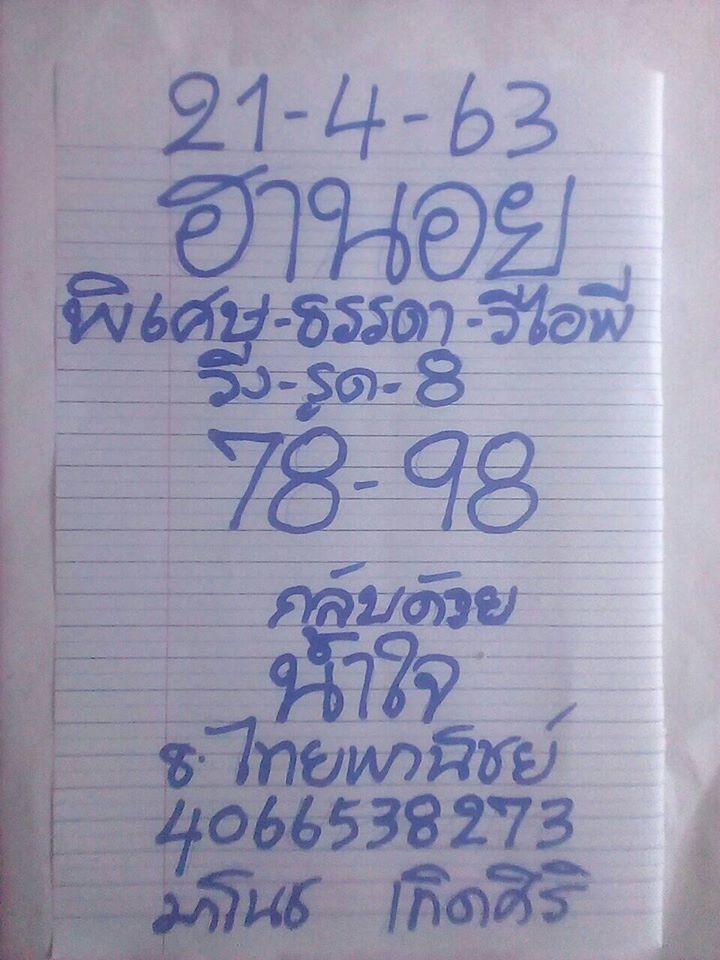 21-4-63
ฮานอย
พิเศษ-ธรรดา-วีไอพี
วิ่ง-รูด-8
78-98
กลับด้วย
น้ำใจ
ธ.ไทยพานิชย์
4066538273
มาโนช เกิดศิริ